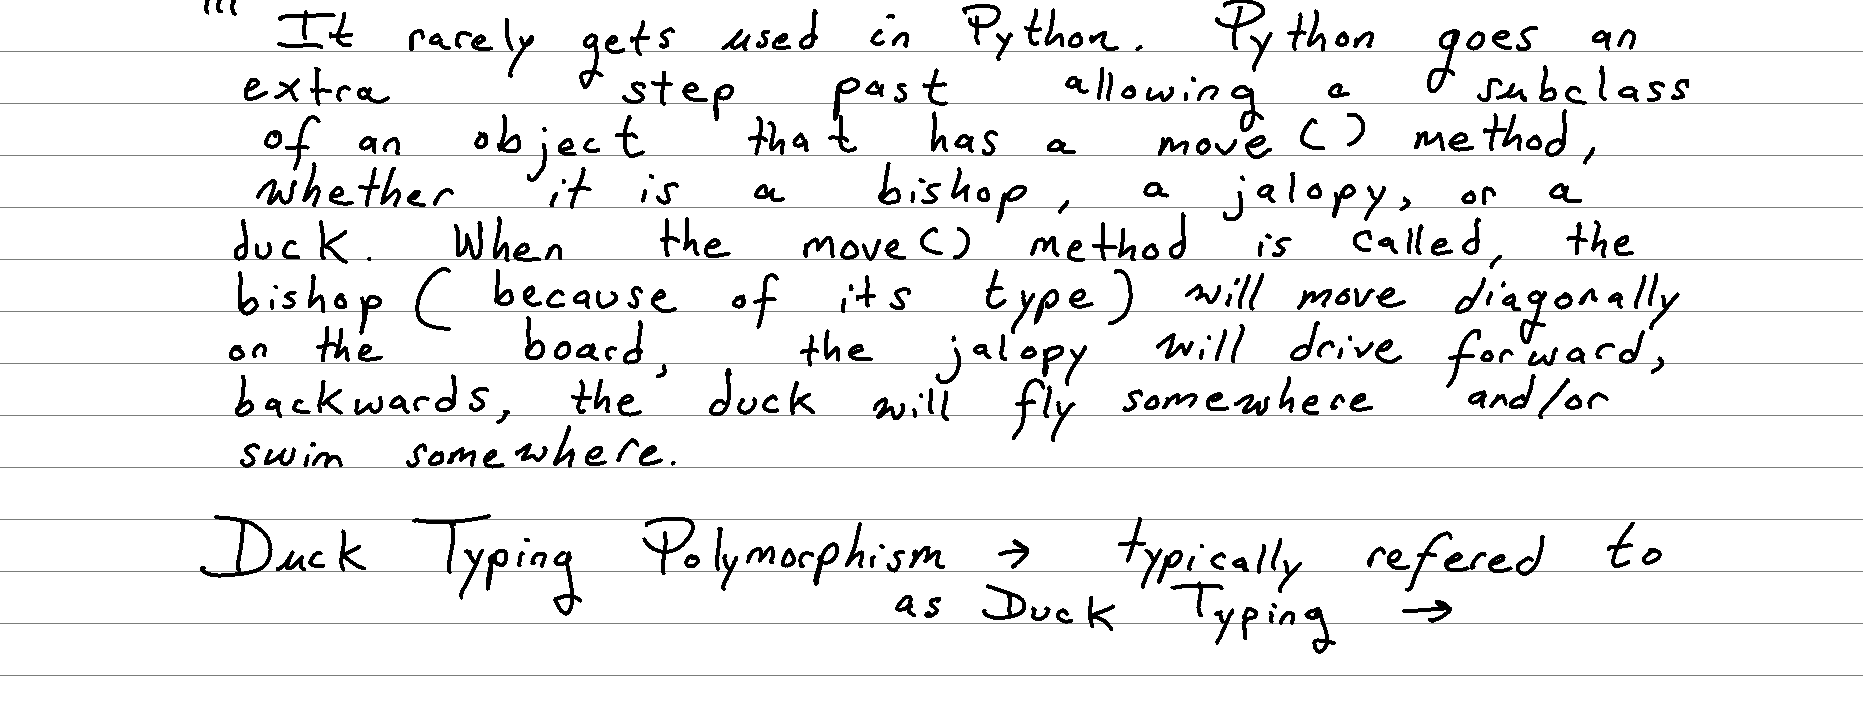 It rarely gets used in Python. Python goes an
extra step past allowing a subclass
of an object that has a move() method,
whether it is a bishop, a jalopy, or a
duck. When the move() method is called, the
bishop (because of its type) will move diagonally
on the board, the jalopy will drive forward,
backwards, the duck will fly somewhere and/or
swim somewhere.
Duck Typing Polymorphism → typically refered to
as Duck Typing →